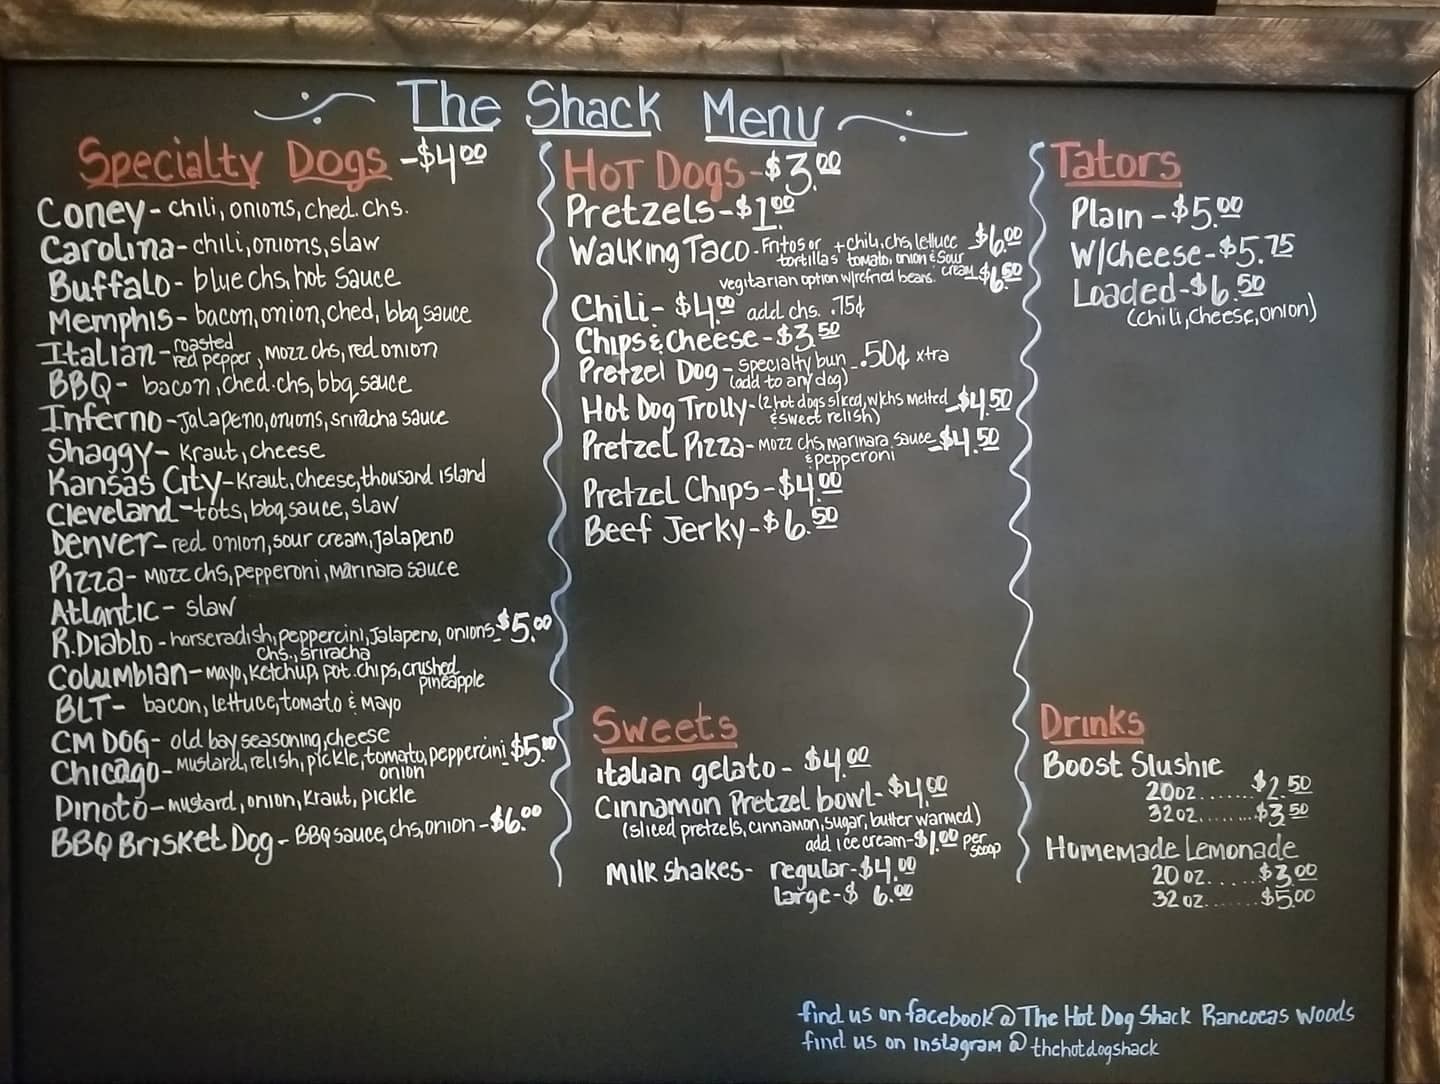 The Shack Menu
Specialty Dogs - $4.00
Coney - chili, onions, ched. chs.
Carolina - chili, onions, slaw
Buffalo - blue chs, hot sauce
Memphis - bacon, onion, ched, bbq sauce
Italian - roasted red pepper, mozz chs, red onion
BBQ - bacon, ched. chs, bbq sauce
Inferno - jalapeno, onions, sriracha sauce
Shaggy - kraut, cheese
Kansas City - kraut, cheese, thousand island
Cleveland - tots, bbq sauce, slaw
Denver - red onion, sour cream, jalapeno
Pizza - mozz chs, pepperoni, marinara sauce
Atlantic - slaw
R. Diablo - horseradish, peppercini, jalapeno, onions - $5.00
chs., sriracha
Columbian - mayo, ketchup, pot. chips, crushed
pineapple
BLT - bacon, lettuce, tomato & mayo
CM DOG - old bay seasoning, cheese
Chicago - mustard, relish, pickle, tomato, peppercini $5.00
onion
Dinoto - mustard, onion, kraut, pickle
BBQ Brisket Dog - BBQ sauce, chs, onion - $6.00
Hot Dogs - $3.00
Pretzels - $1.00
Walking Taco - Fritos or + chili, chs, lettuce $6.00
tortillas tomato, onion & sour cream
vegitarian option w/refried beans. $6.50
Chili - $4.00 add chs. .75¢
Chips & Cheese - $3.50
Pretzel Dog - specialty bun - .50¢ xtra
(add to any dog)
Hot Dog Trolly - (2 hot dogs sliced, w/chs melted - $4.50
& sweet relish)
Pretzel Pizza - mozz chs, marinara sauce - $4.50
& pepperoni
Pretzel Chips - $4.00
Beef Jerky - $6.50
Sweets
italian gelato - $4.00
Cinnamon Pretzel bowl - $4.00
(sliced pretzels, cinnamon, sugar, butter warmed)
add ice cream - $1.00 per scoop
Milk Shakes - regular - $4.00
large - $ 6.00
Tators
Plain - $5.00
W/Cheese - $5.75
Loaded - $6.50
(chili, cheese, onion)
Drinks
Boost Slushie
20oz........$2.50
32oz........$3.50
Homemade Lemonade
20 oz......$3.00
32 oz.......$5.00
find us on facebook @ The Hot Dog Shack Rancocas Woods
find us on instagram @ thehotdogshack